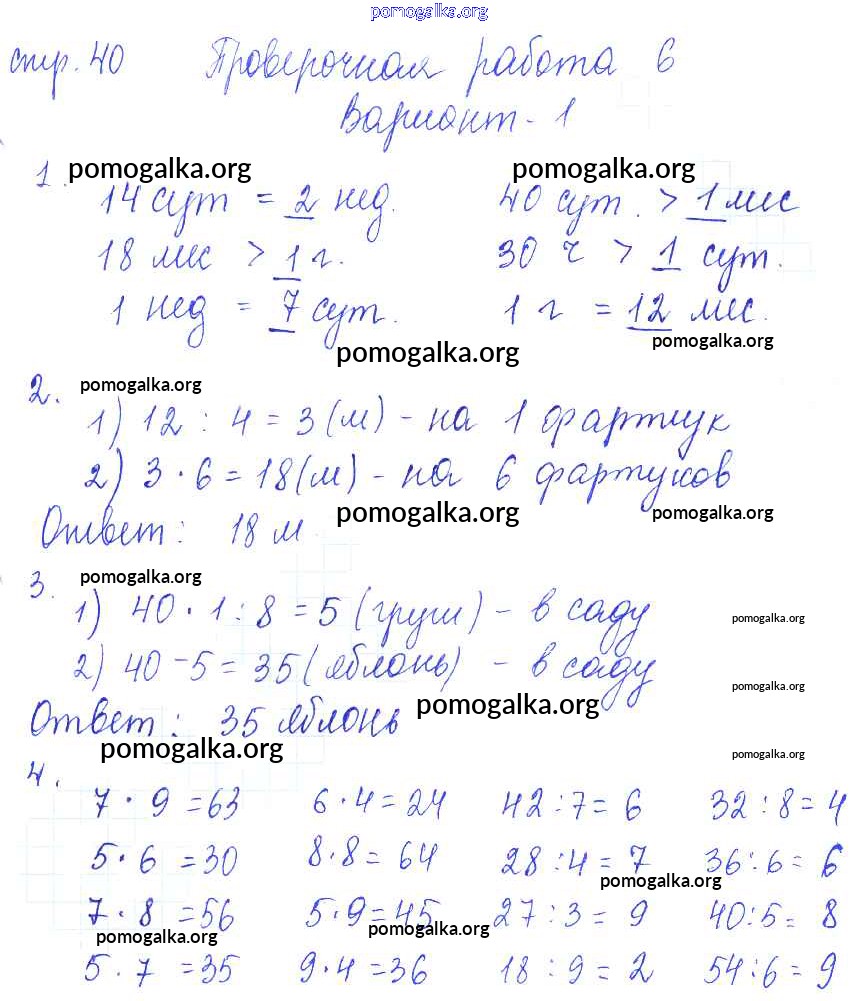 pomogalka.org
стр. 40 Проверочная работа 6
Вариант - 1
1. pomogalka.org pomogalka.org
14 сут = 2 нед. 40 сут. > 1 мес
18 мес > 1 г. 30 ч > 1 сут.
1 нед = 7 сут. 1 г = 12 мес.
pomogalka.org pomogalka.org
2. pomogalka.org
1) 12 : 4 = 3 (м) - на 1 фартук
2) 3 · 6 = 18 (м) - на 6 фартуков
Ответ: 18 м pomogalka.org pomogalka.org
3. pomogalka.org
1) 40 · 1 : 8 = 5 (груш) - в саду pomogalka.org
2) 40 - 5 = 35 (яблонь) - в саду pomogalka.org
Ответ: 35 яблонь pomogalka.org
pomogalka.org pomogalka.org
4.
7 · 9 = 63 6 · 4 = 24 42 : 7 = 6 32 : 8 = 4
5 · 6 = 30 8 · 8 = 64 28 : 4 = 7 36 : 6 = 6
pomogalka.org
7 · 8 = 56 5 · 9 = 45 27 : 3 = 9 40 : 5 = 8
pomogalka.org pomogalka.org
5 · 7 = 35 9 · 4 = 36 18 : 9 = 2 54 : 6 = 9